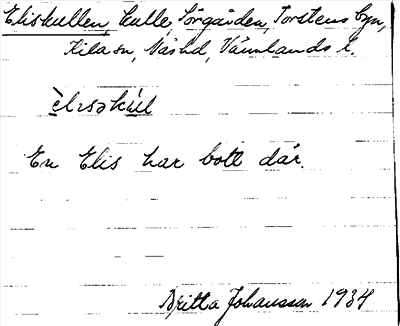 Eliskullen, kulle, Sörgården, Torstensbyn,
Kila sn, Näs hd, Värmlands l.
èlɩsəkùl
En Elis har bott där.
Britta Johansson 1934